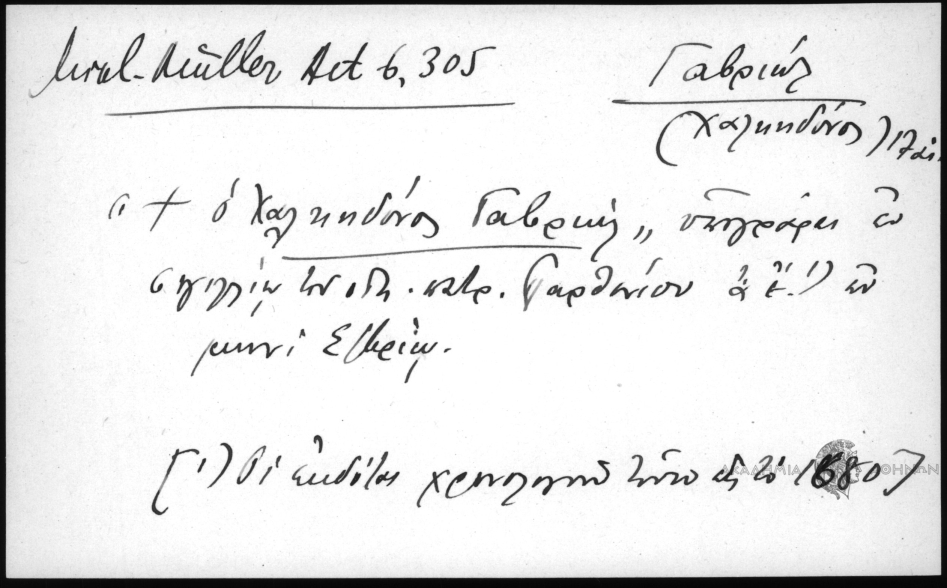 Mikl-Müller Act 6, 305 Γαβριήλ
(Χαλκηδόνος) 17 αἰ.
« + ὁ Χαλκηδόνος Γαβριήλ „ ὑπογράφει ἐν
σιγιλλίῳ τοῦ οἰκ. πατρ. Παρθενίου ἐν
μηνὶ
(1) Οἱ ἐκδόται χρονολογοῦν τοῦτο εἰς τὸ 1680]
ΑΚΑΔΗΜΙΑ ΑΘΗΝΩΝ